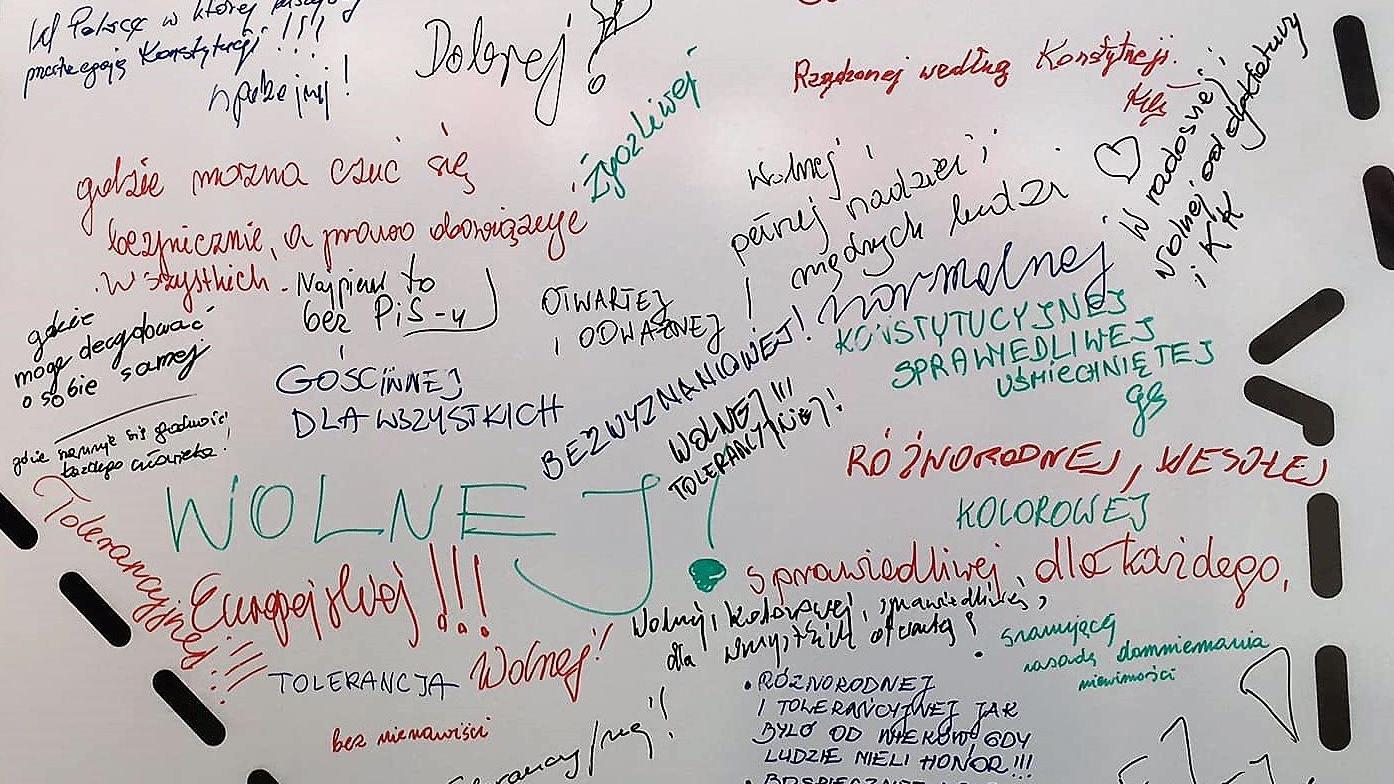 W Polsce w której
przestrzegają Konstytucji!!!
spokojnej!
Dobrej!
Życzliwej
Rządzonej według Konstytucji.
gdzie można czuć się
bezpiecznie, a prawo obowiązuje
wszystkich.
Najpierw to
bez PiS-u
OTWARTEJ
i ODWAŻNEJ
Wolnej,
pełnej nadziei,
mądrych ludzi
W radosnej,
wolnej od dyktatury
i KK
gdzie
mogę decydować
o sobie samej
GOŚCINNEJ
DLA WSZYSTKICH
BEZWYZNANIOWEJ!
normalnej
KONSTYTUCYJNEJ
SPRAWIEDLIWEJ
UŚMIECHNIĘTEJ
gdzie szanuje się godność
każdego człowieka!
WOLNEJ!!!
TOLERANCYJNEJ!
RÓŻNORODNEJ, WESOŁEJ
KOLOROWEJ
WOLNEJ!
Tolerancyjnej!!!
Europejskiej!!!
sprawiedliwej, dla każdego,
Wolnej, kolorowej, sprawiedliwej,
dla wszystkich otwartej!
szanującej
zasadę domniemania
niewinności
TOLERANCJA
Wolnej!
bez nienawiści
• RÓŻNORODNEJ
I TOLERANCYJNEJ JAK
BYŁO OD WIEKÓW GDY
LUDZIE MIELI HONOR!!!